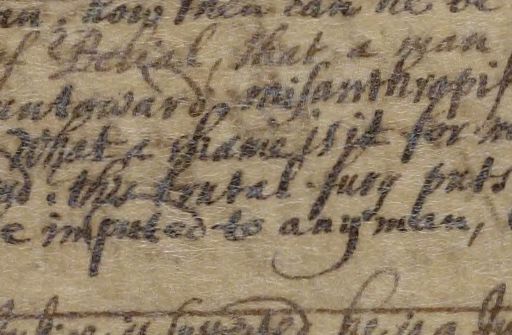 how then can he be
of Belial, that a man
untoward misanthropis
What a shame is it for m
this brutal fury puts
e imputed to any man,
he is